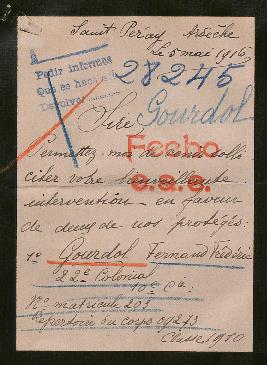 Saint Péray Ardèche
le 5 mai 1916
Pedir informes
Que se hace
Devolver
28245
Gourdol
Sire
Fecho
Permettez moi de vous solli
citer votre bienveillante
intervention en faveur
de deux de nos protégés:
1º Gourdol Fernand Frédéric
22e Colonial
10e Cie
Nº matricule 203
Répertoire du corps 09273
Classe 1910